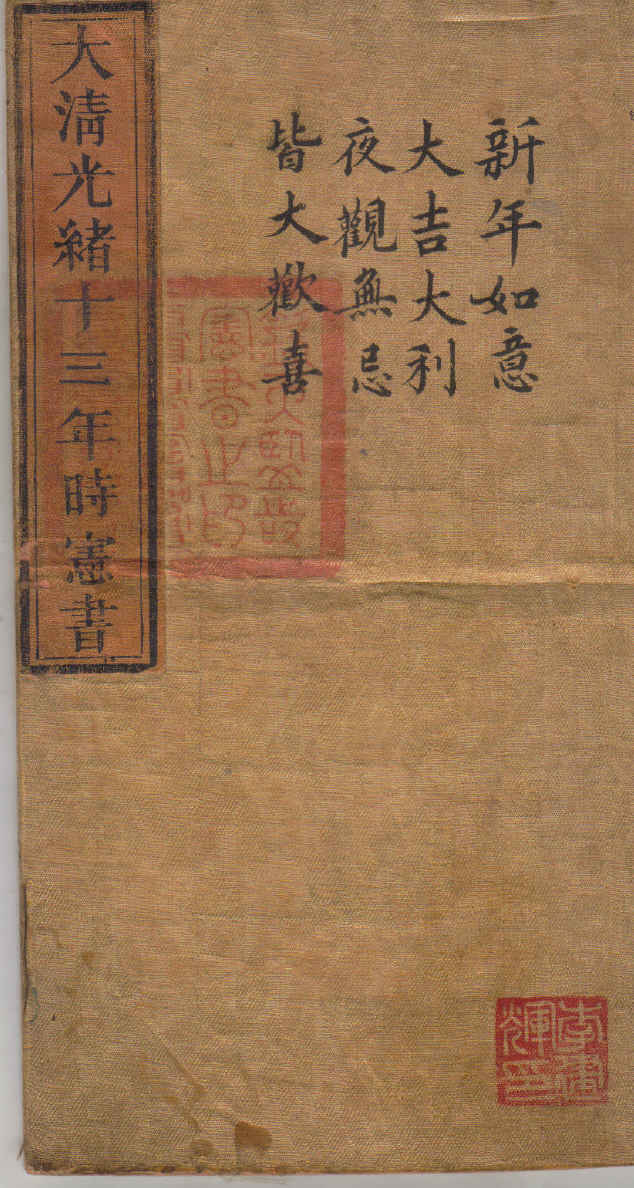 新年如意
大吉大利
夜觀無忌
皆大歡喜
大清光緒十三年時憲書
憲書之印